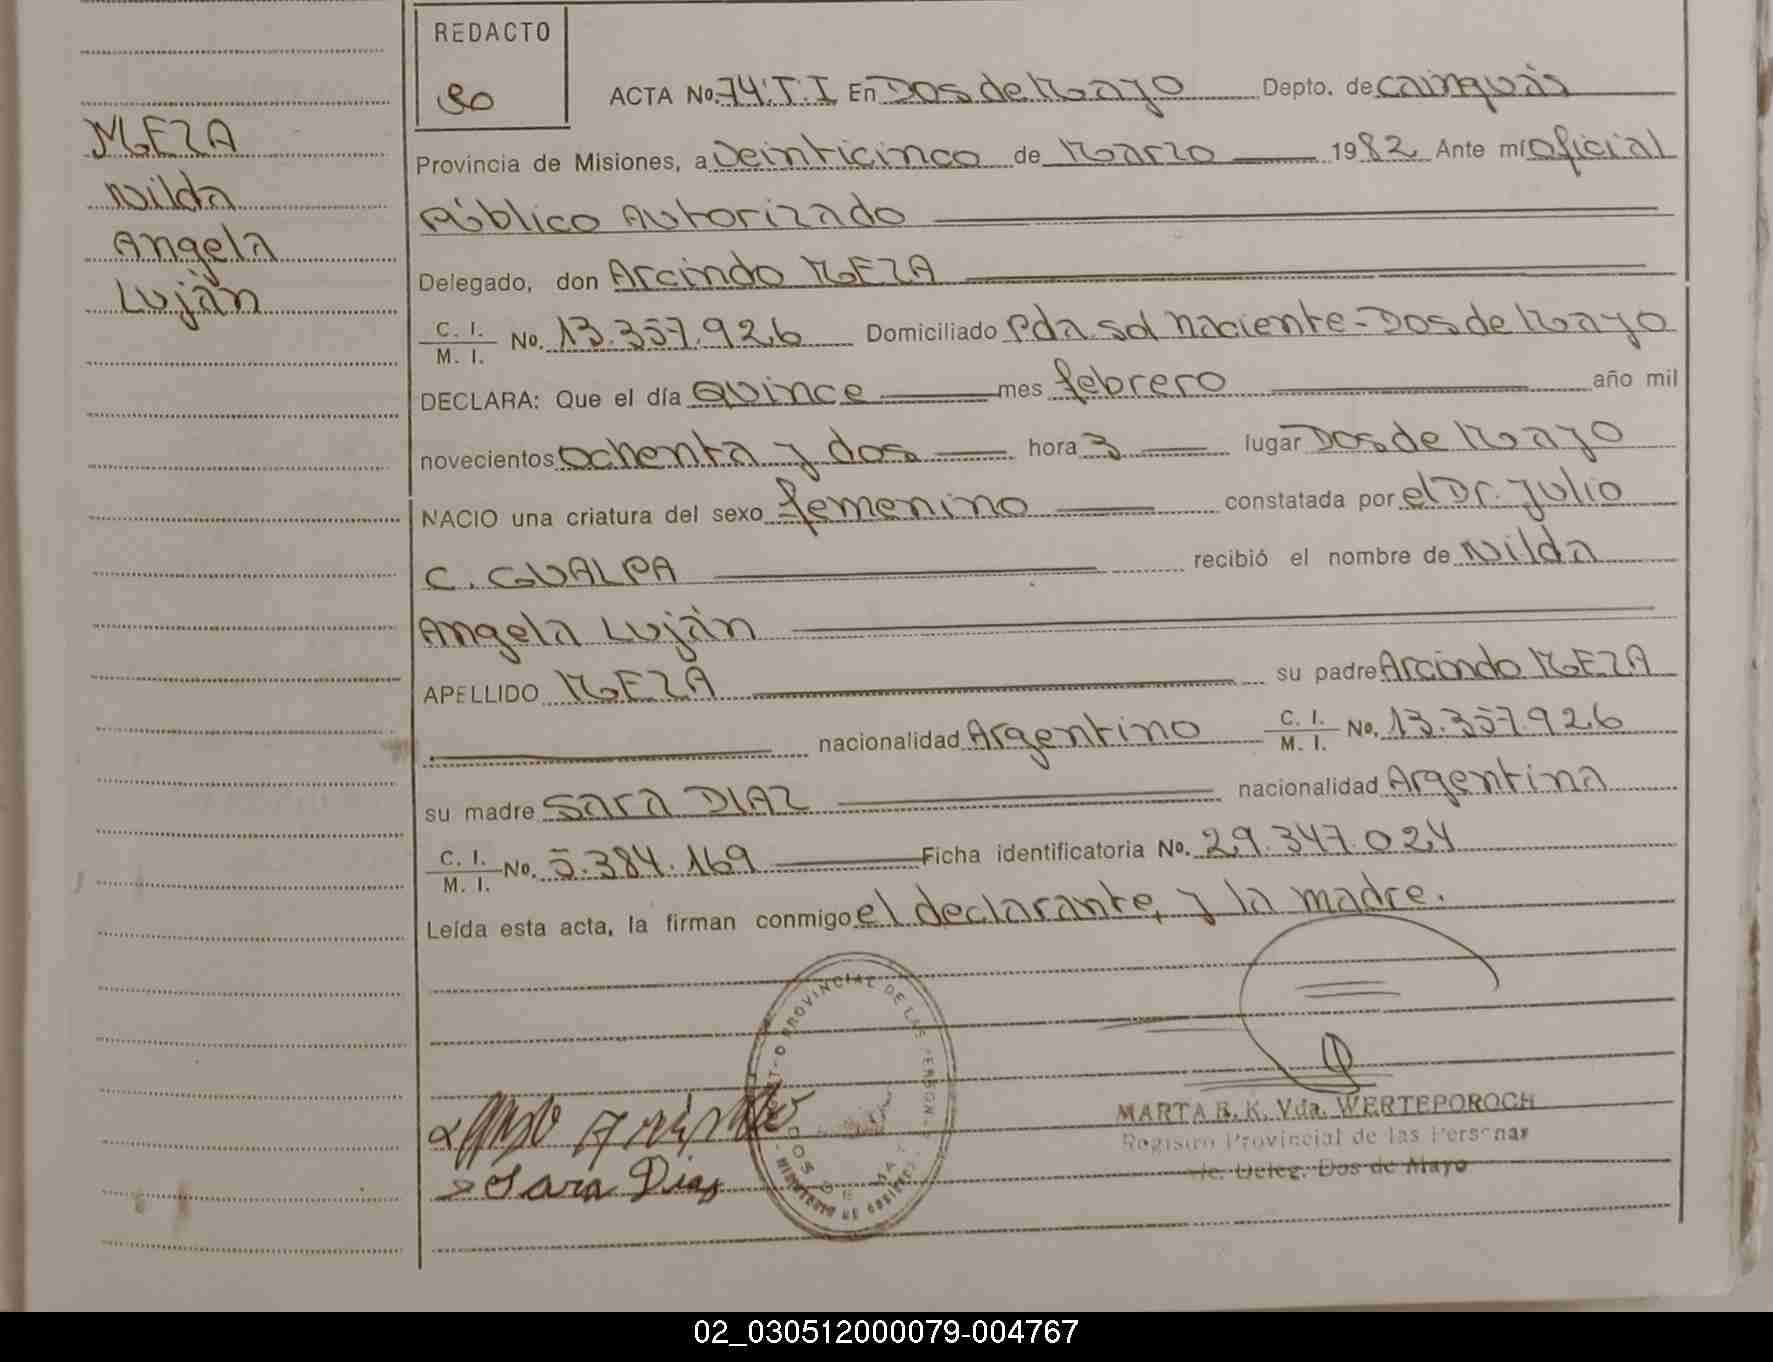 REDACTO
ACTA No. 74 T. I En Dos de Mayo Depto. de Cainguás
MEZA
Provincia de Misiones, a veinticinco de Marzo 1982 Ante mí oficial
Nilda
Público Autorizado
Angela
Delegado, don Arcindo MEZA
Luján
C. I.
M. I. No. 13.357.926 Domiciliado Pda. Sol Naciente - Dos de Mayo
DECLARA: Que el día Quince mes febrero año mil
novecientos ochenta y dos hora 3 lugar Dos de Mayo
NACIO una criatura del sexo femenino constatada por el Dr. Julio
C. GUALPA recibió el nombre de Nilda
Angela Luján
APELLIDO MEZA su padre Arcindo MEZA
nacionalidad Argentino C. I.
M. I. No. 13.357.926
su madre Sara DIAZ nacionalidad Argentina
C. I.
M. I. No. 5.384.169 Ficha identificatoria No. 29.347.024
Leída esta acta, la firman conmigo el declarante, y la madre.
PROVINCIAL DE LAS PERSONAS
MINISTERIO DE GOBIERNO
MARTA R. K. Vda. WERTEPOROCH
Registro Provincial de las Personas
Deleg. Dos de Mayo
Sara Diaz
02_030512000079-004767